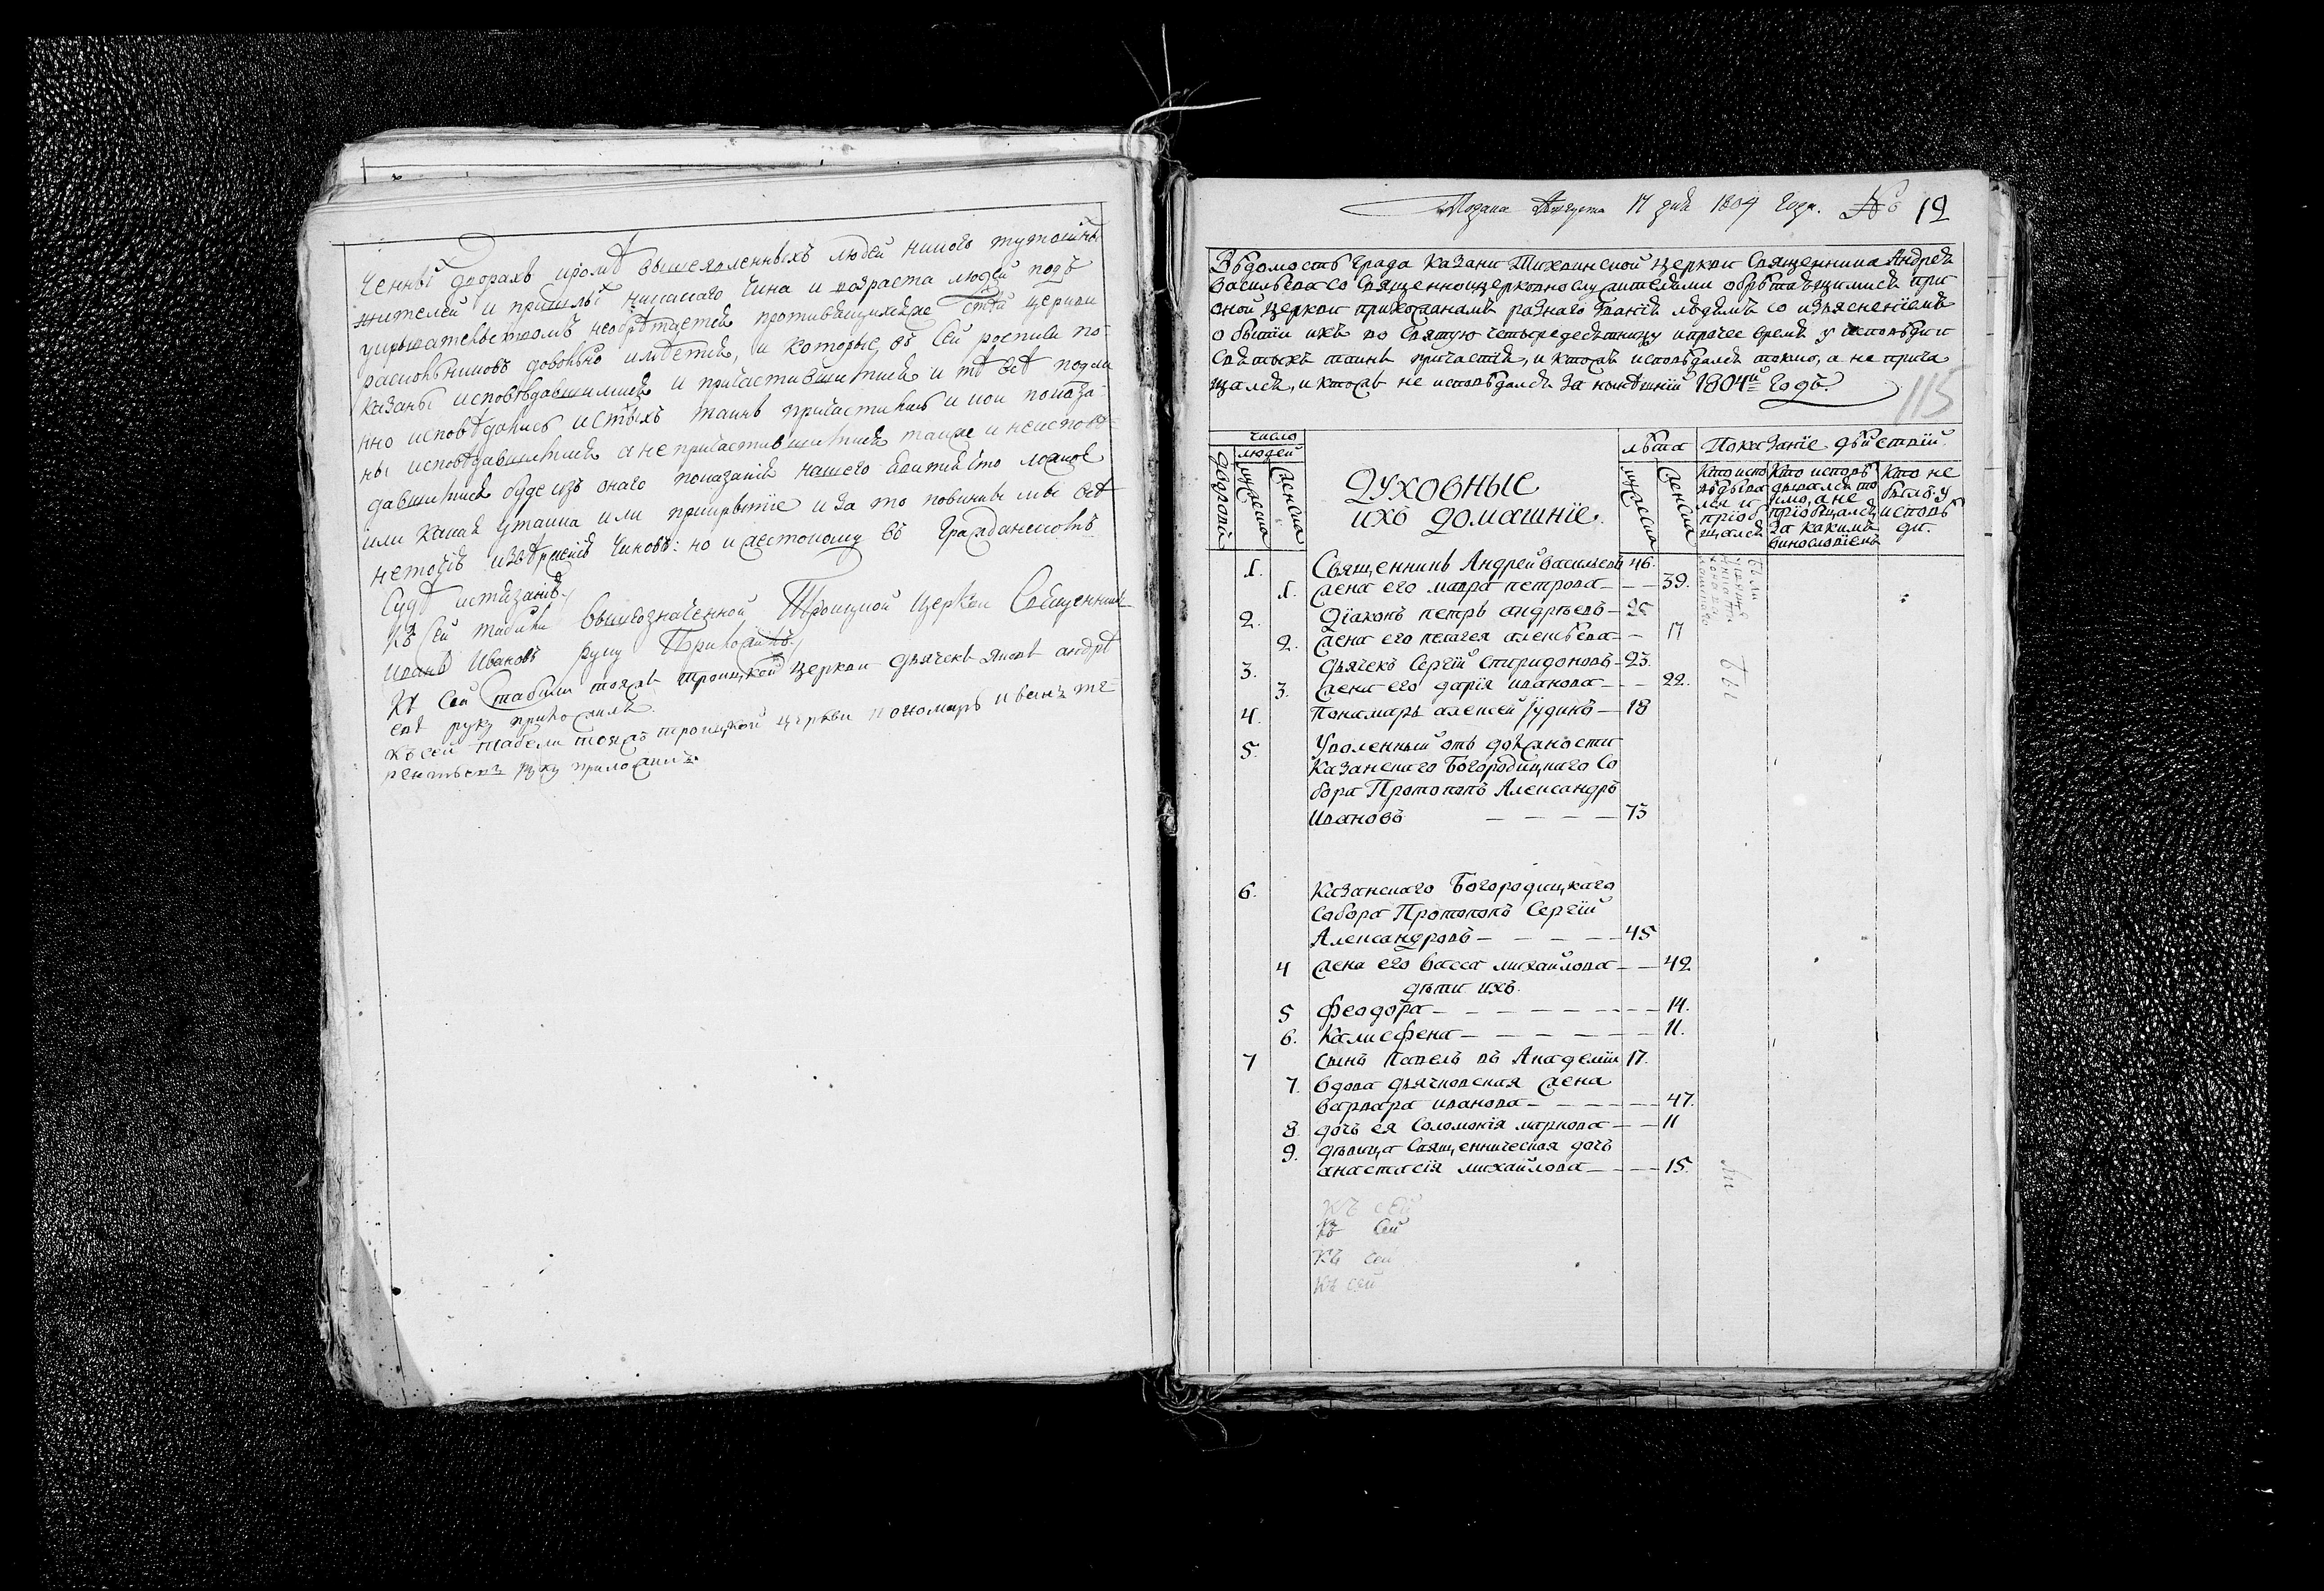 ченны дворахъ кромѣ вышеявленныхъ людей никого тутошны
жителей и пришлы никакаго чина и возраста людей подъ
укрывательствомъ необрѣтается противящихсяже стѣй церкви
раскольниковъ довольно имѣется, и которые въ сей росписи по-
казаны исповѣдавшимися и причастившимися и тѣ всѣ подли
нно исповѣдались и стыхъ таинъ причастились и кои показа-
ны исповѣдавшимися а не причастившимися также и неисповѣ-
давшимися буде изъ онаго показанія нашего явится что ложное
или какая утайка или прикрытіе и за то повинны мы всѣ
нетокмо изверженія чиновъ: но и жестокому въ гражданскомъ
судѣ истязанію
Къ сей табели вышеозначенной Троицкой церкви Священникъ
Иванъ Ивановъ руку Приложилъ
Къ сей табели тояжъ троицкой церкви дьячекъ Яковъ андрѣ
евъ руку приложилъ
Къ сей табели тояжъ троицкой церкви пономарь иванъ те-
рентьевъ руку приложилъ
Подана Августа 17 дня 1804 года. № 6 19
Вѣдомость града Казани Тихвинской церкви Священника Андрея
Васильева со Священноцерковнослужительми обрѣтающимися при
оной церкви прихожанамъ разнаго званія людямъ со изъясненіемъ
о бытіи ихъ во Святую четыредесятницу и прочее время у исповѣди и
Святыхъ таинъ причастія, и ктожъ исповѣдался токмо, а не прича
щался, и ктожъ не исповѣдался за нынѣшній 1804й Годъ.
115
число людей
лѣта
Показаніе дѣйствій.
дворовъ
мужеска
женска
Духовные
ихъ домашніе.
мужеска
женска
Кто испо
вѣдыва
лся и
пріоб
щался
Кто исповѣ
дывался то
кмо, а не
пріобщался
за какимъ
винословіемъ
Кто не
былъ у
исповѣ
ди.
1. Священникъ Андрей Васильевъ 46.
1. жена его мавра петрова — 39.
2. Діаконъ петръ андрѣевъ — 25
2. жена его пелагея алексѣева — 17
3. дьячекъ Сергій Спиридоновъ — 23.
3. жена его дарія иванова — 22.
4. Пономарь алексей Іудинъ — 18
5. Уволенный отъ должности
Казанскаго Богородицкаго Со
бора Протопопъ Александръ
Ивановъ — 73
6. Казанскаго Богородицкаго
Собора Протопопъ Сергій
Александровъ — 45
4 жена его Васса михайлова — 42
дѣти ихъ.
5 Феодора — 14.
6. Калисфена — 11.
7 Сынъ Павелъ въ Академіи 17.
7. Вдова дьячковская жена
варвара иванова — 47.
8. дочь ея Соломонія маркова — 11
9. дѣвица Священническая дочь
анастасія михайлова — 15.
Бы
ли
Къ сей
Къ Сей
Къ сей
Къ сей